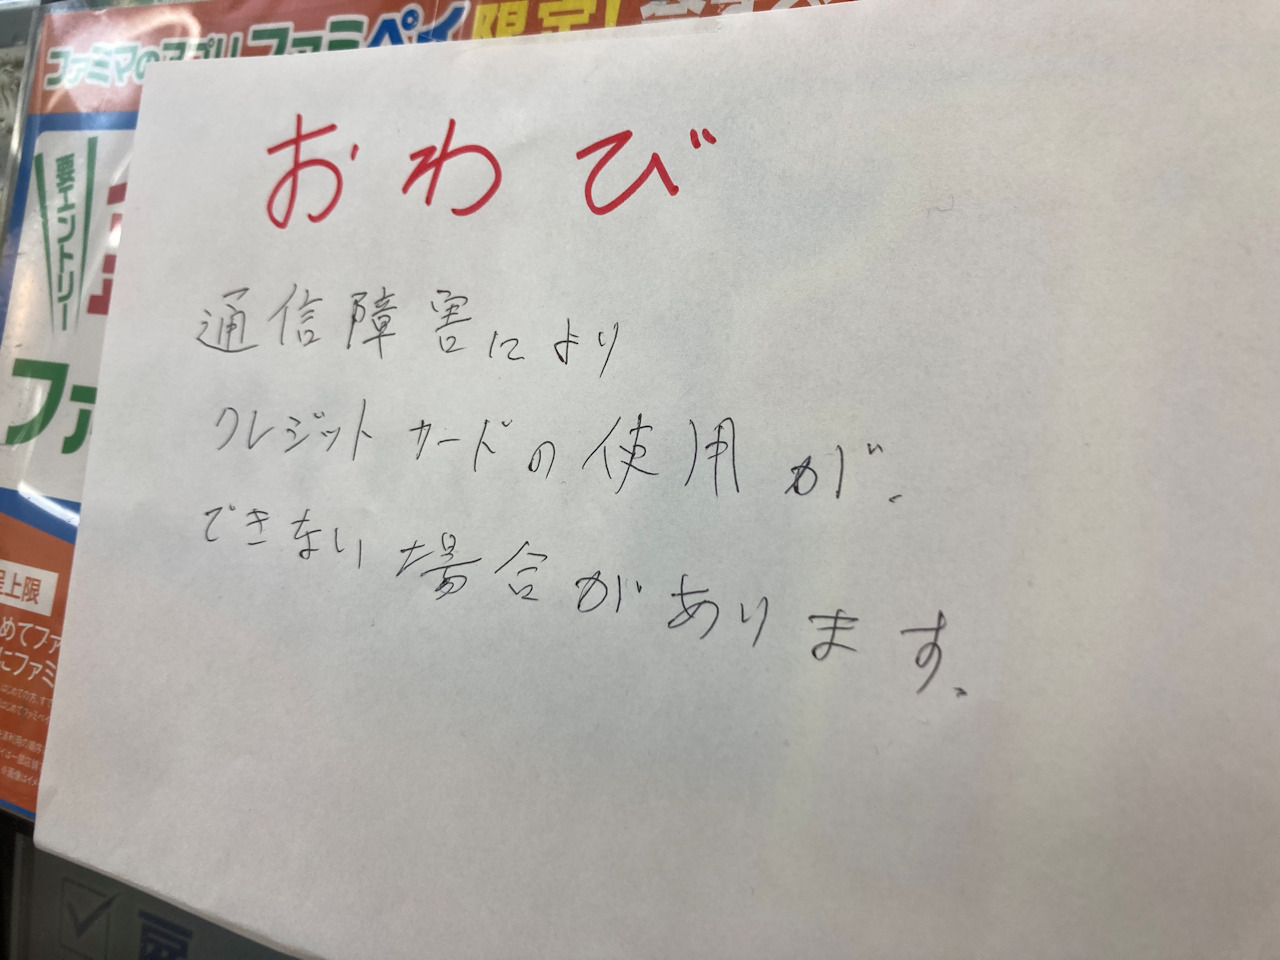 ファミマのアプリ ファミペイ 限定!
要エントリー
ファ
おわび
通信障害により
クレジットカードの使用が、
できない場合があります。
上限
めてファ
にファミ